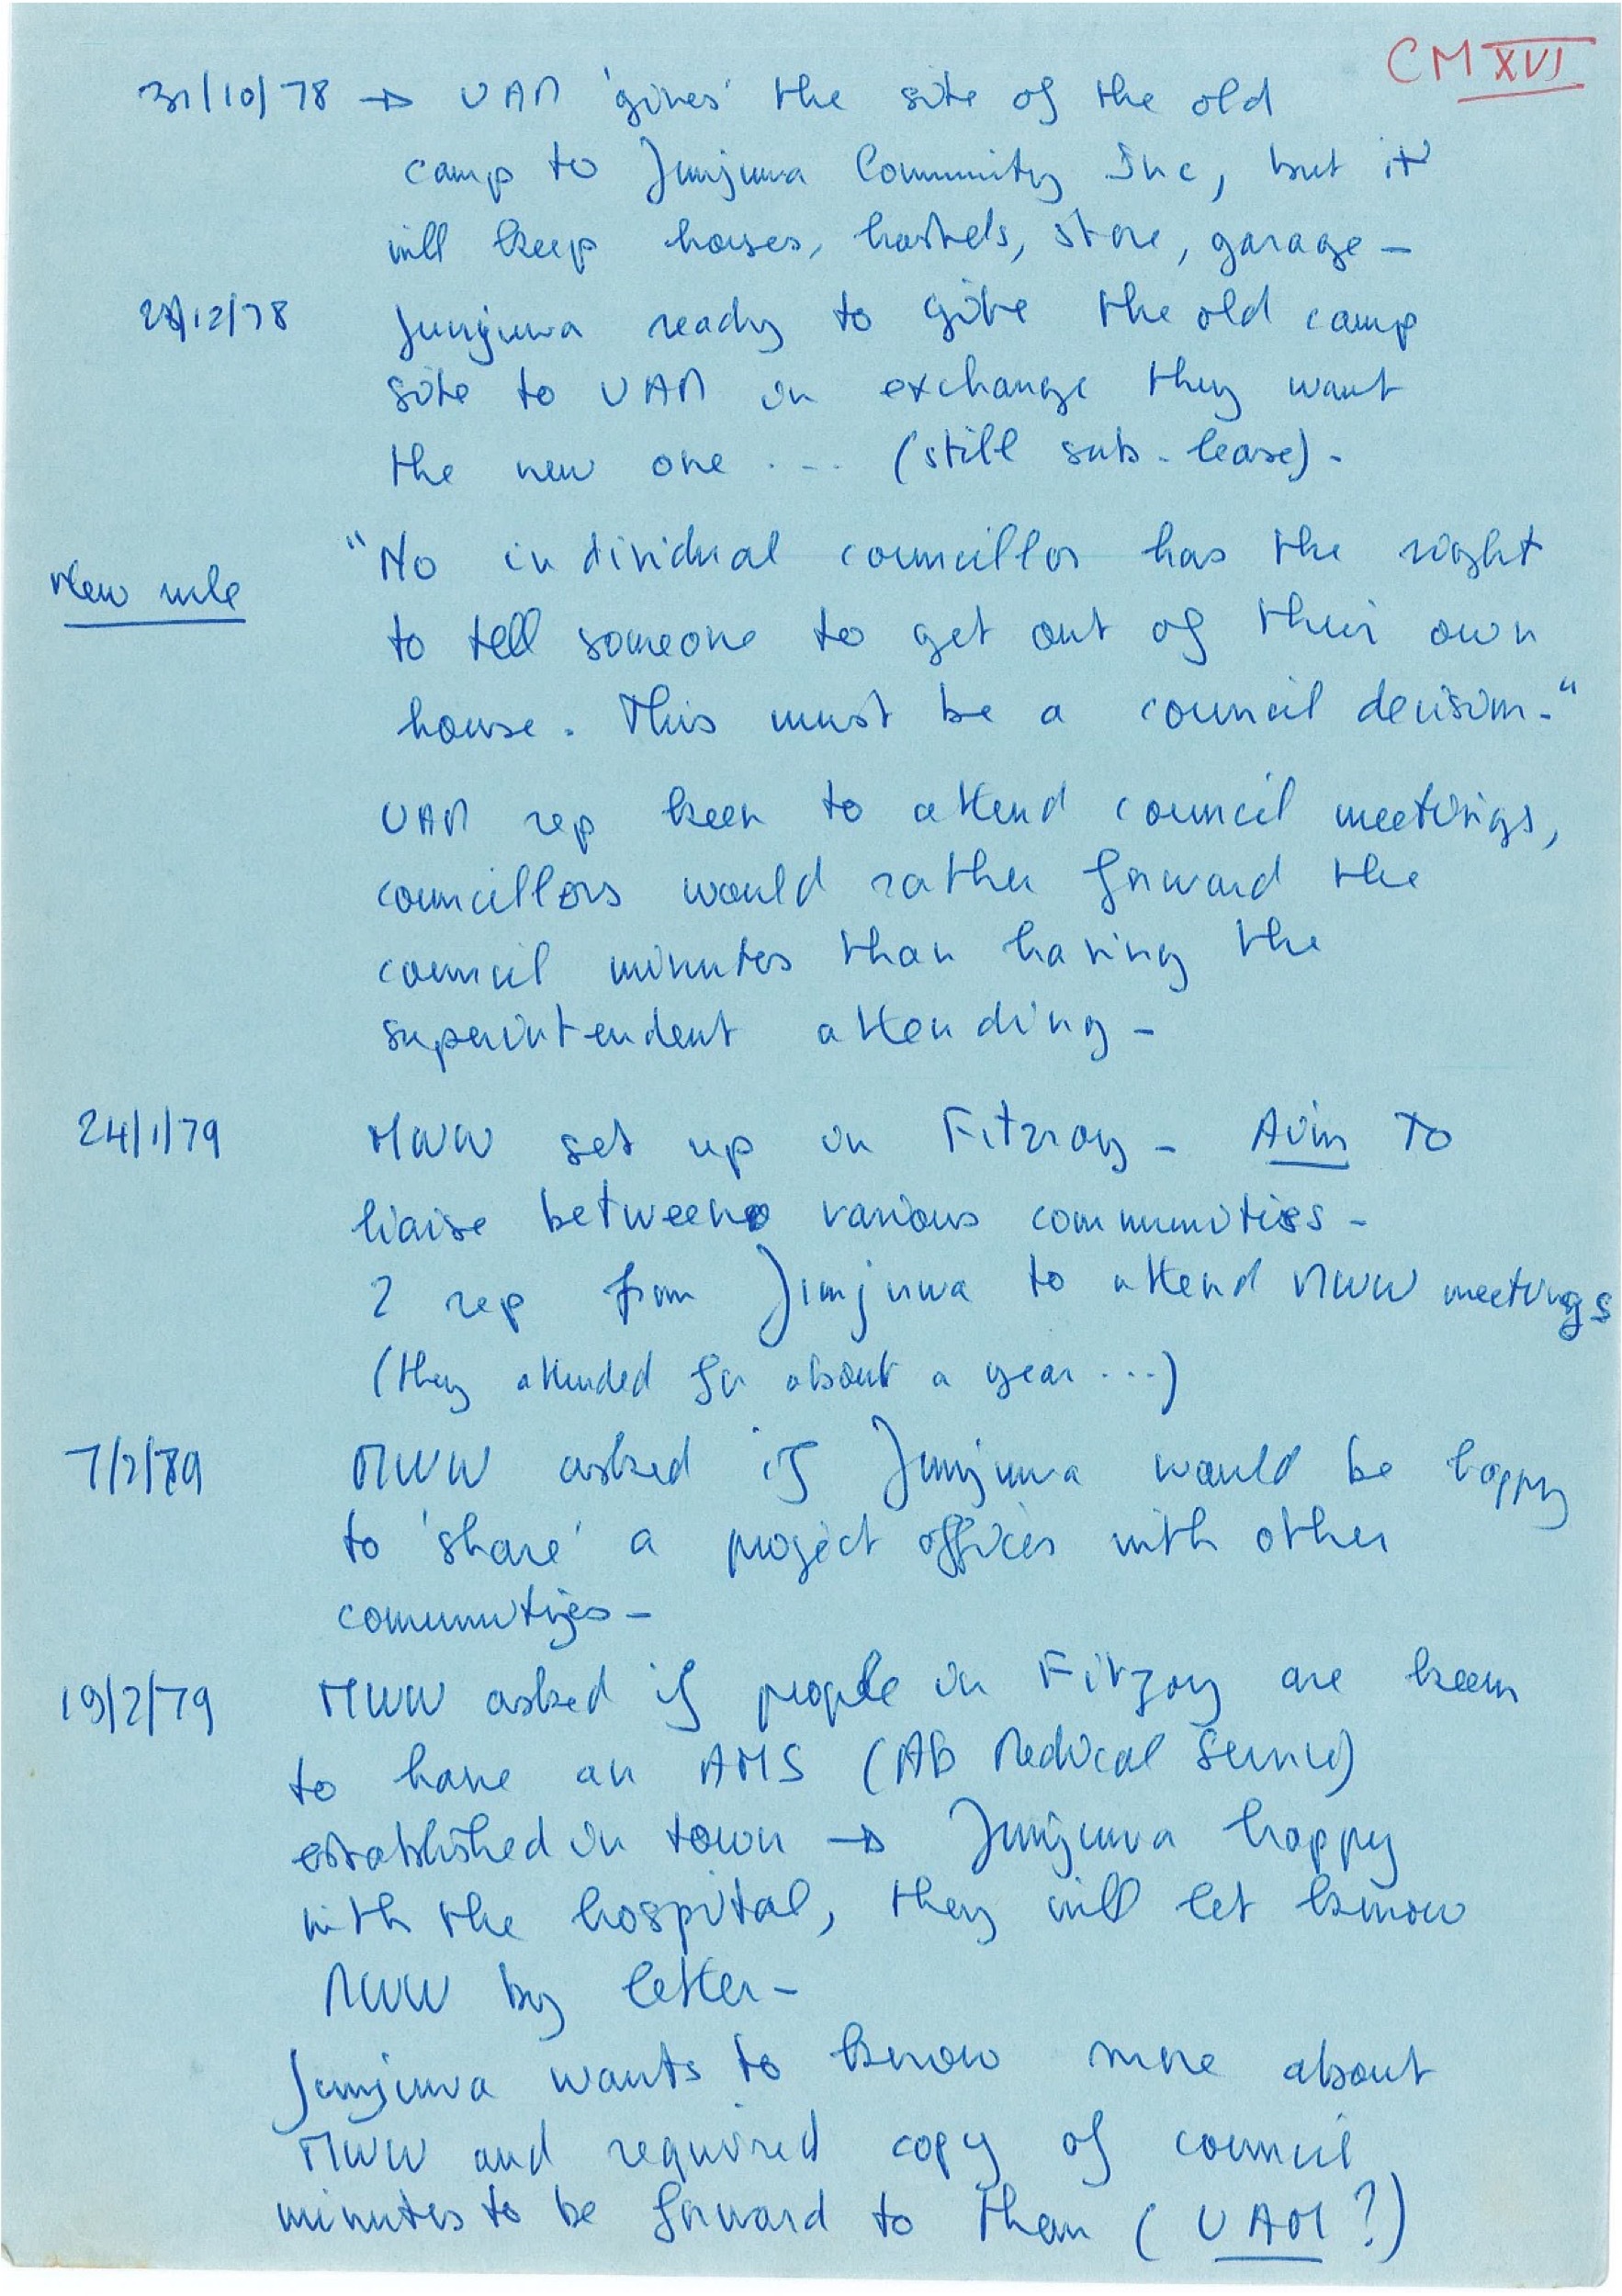 CM XVI
31/10/78 → UAM 'gives' the site of the old
camp to Junjuwa Community Inc, but it
will keep houses, hostels, store, garage -
Junjuwa ready to give the old camp
site to UAM in exchange they want
the new one .... (still sub-lease).
New rule "No individual councillor has the right
to tell someone to get out of their own
house. This must be a council decision."
UAM rep keen to attend council meetings,
councillors would rather forward the
council minutes than having the
superintendent attending -
24/1/79 MWW set up in Fitzroy - Aim To
liaise between various communities -
2 rep from Junjuwa to attend MWW meetings
(they attended for about a year ...)
7/2/79 MWW asked if Junjuwa would be happy
to 'share' a project officer with other
communities -
19/2/79 MWW asked if people in Fitzroy are keen
to have an AMS (AB Medical Service)
established in town → Junjuwa happy
with the hospital, they will let know
MWW by letter -
Junjuwa wants to know more about
MWW and required copy of council
minutes to be forward to them (UAM?)